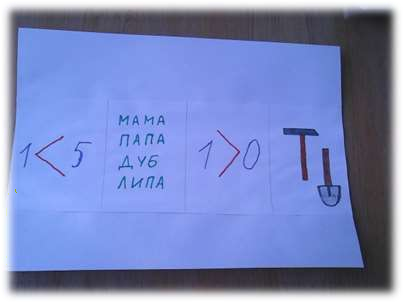 1 < 5
МАМА
ПАПА
ДУБ
ЛИПА
1 > 0